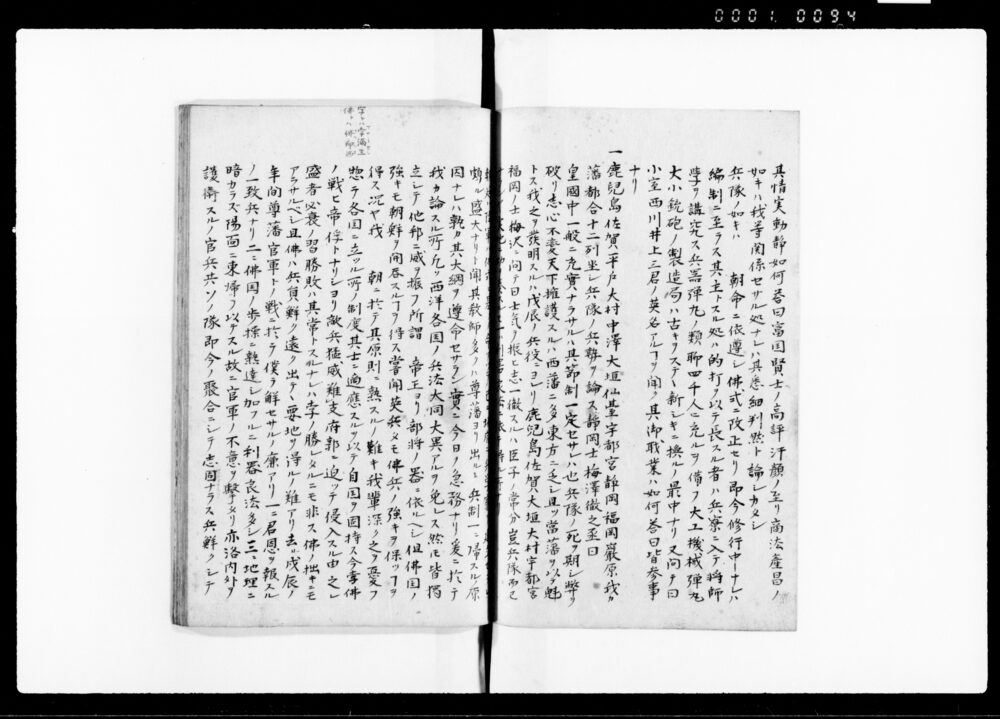 0001 0094
其情実動静如何答曰富国賢士ノ高評汗顔ノ至リ商法産昌ノ
如キハ我等関係セサル処ナレハ其悉細判然ト論シカタシ
兵隊ノ如キハ 朝命ニ依遵シ佛式ニ改正セリ即今修行中ーナレハ
編制ニ至ラス其主トスル処ハ的打ヲ以テ長スル者ハ兵寮ニ入テ将師
学ヲ講究ス兵器弾丸ノ類聊四千人ニ充ルヲ備フ大工機械弾丸
大小銃砲ノ製造局ハ古キヲステヽ新シキニ換ルノ最中ナリ又問テ曰
小室西川井上三君ノ英名アルヿヲ聞ク其御職業ハ如何答曰皆参事
ナリ
一鹿児島佐賀平戸大村中澤大垣仙臺宇都宮静岡福岡巖原我カ
藩都合十二列坐シ兵隊ノ兵勢ヲ論ス静岡士梅澤徹之丞曰
皇國中一般ニ充實ナラサルハ其節制一定セサレハ也兵隊ノ死ヲ期シ弊ヲ
破リ志心不変天下擁護スルハ西藩ニ多東方ニ乏シ且ツ當藩ヲ以テ魁
トス我之ヲ發明スルハ戊辰ノ兵役ニヨレリ鹿児島佐賀大垣大村宇都宮
福岡ノ士梅沢ニ問テ曰士気ヲ振ヒ志一徹スルハ臣子ノ常分豈兵隊而已
宇トハ宇漏生
佛トハ佛郎西
頗ル盛大ナリト聞其教師多クハ尊藩ヨリ出ルト兵制一ニ帰スル原
因ナレハ孰カ其大綱ヲ遵命セサラン實ニ今日ノ急務ナリ爰ニ於テ
我カ論スル所凡ソ西洋各国ノ兵法大同大異アルヲ免レス然ルモ皆獨
立シテ他邦ニ威ヲ振フ所謂 帝王ヨリ部将ノ器ニ依ルヘシ且佛国ノ
強キモ朝鮮ヲ開呑スルヿヲ得ス嘗聞英兵メモ佛兵ノ強キヲ保ツヿヲ
得ス况ヤ我 朝ニ於テ其原則ニ熟スルノ難キ我輩深ク之ヲ憂フ
惣テ各国ニ立ツル所ノ制度其士ニ適應スルヲ以テ自国ヲ固持ス今孛佛
ノ戦ヒ帝俘トナリシヨリ敵兵猛威離支府郭ニ迫ッテ侵入スル由之レ
盛者必衰ノ習勝敗ハ其常トスルナレハ孛ノ勝レタルニモ非ス佛ノ拙キニモ
アラサルヘシ且佛ハ兵員鮮ク遠ク出テヽ要地ヲ得ルノ難アリ去ル戊辰ノ
年間尊藩官軍トノ戦ニ於テ僕ヲ解セサルノ廉アリ一ニ君恩ヲ報スル
ノ一致兵ナリ二ニ佛国ノ歩操ニ熟達シ加フルニ利器良法多シ三ニ地理ニ
暗カラス陽面ニ東帰ヲ以テスル故ニ官軍ノ不意ヲ撃メリ亦洛内外ヲ
護衛スルノ官兵共ソノ隊即今ノ聚合ニシテ志固ナラス兵鮮クシテ